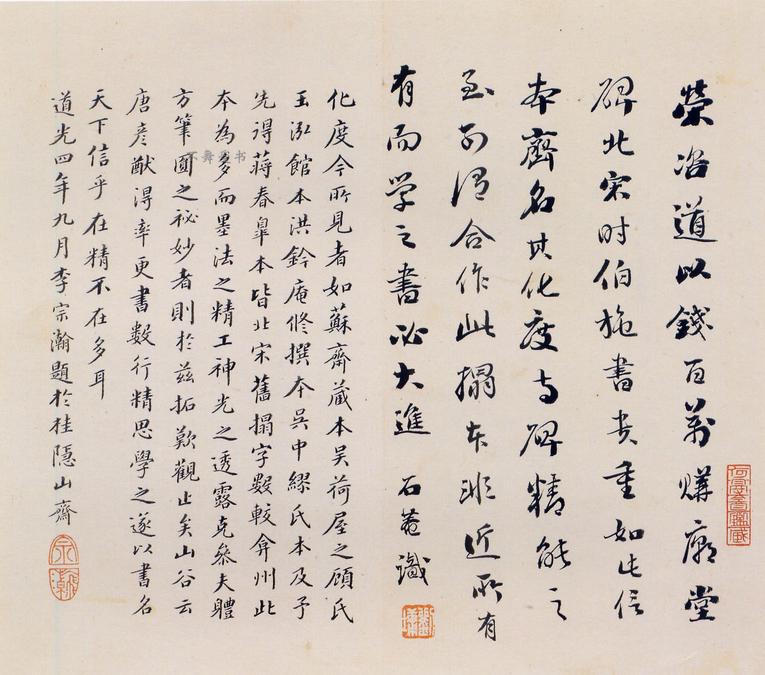 榮咨道以錢百萬購廟堂
碑北宋時伯施書貴重如此信
本齊名其化度寺碑精能之
至可謂合作此搨本非近所有
有而學之書必大進 石菴識
化度今所見者如蘇齋藏本吴荷屋之顧氏
玉泓館本洪鈐庵修撰本吴中繆氏本及予
先得蔣春皐本皆北宋舊搨字數較弇州此
本為多而墨法之精工神光之透露克叅夫體
方筆圓之祕妙者則於兹拓歎觀止矣山谷云
唐彦猷得率更書數行精思學之遂以書名
天下信乎在精不在多耳
道光四年九月李宗瀚題於桂隱山齋
宗瀚